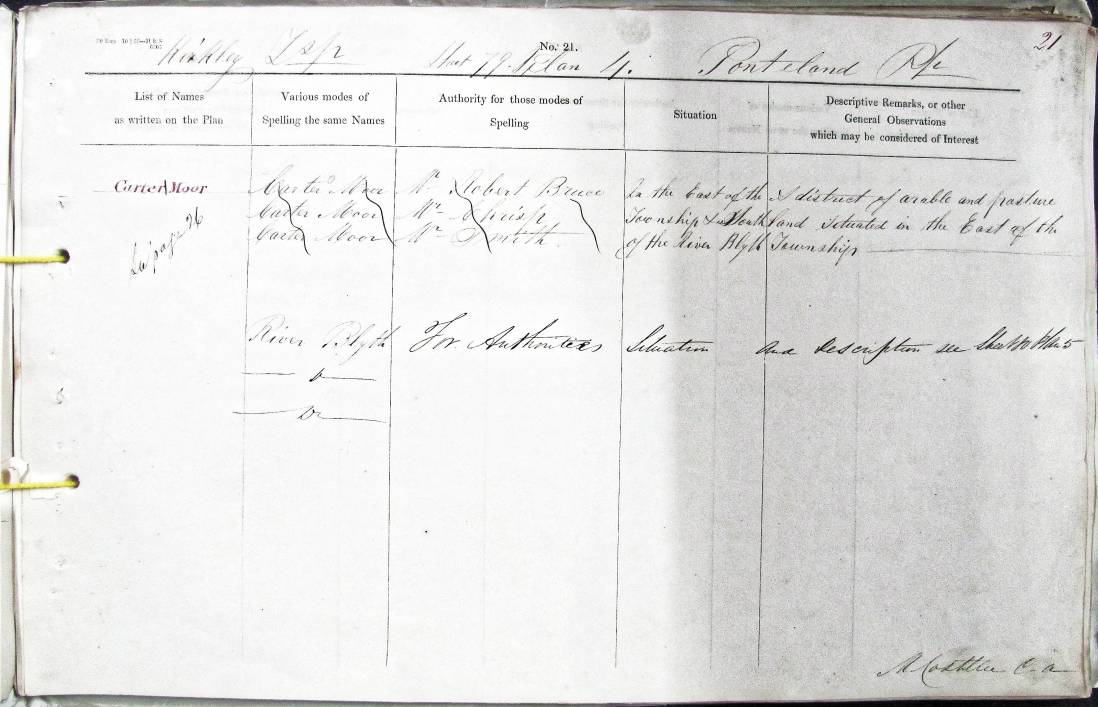 No. 21.
21
Kirkley Tsp Sheet 79. Plan 4. Ponteland
List of Names
as written on the Plan
Various modes of
Spelling the same Names
Authority for those modes of
Spelling
Situation
Descriptive Remarks, or other
General Observations
which may be considered of Interest
Carter Moor
See page 26
Carter Moor
Carter Moor
Carter Moor
Mr Robert Bruce
Mr Chrisp
Mr Smith
In the East of the
Township & South
of the River Blyth
A district of arable and pasture
Land Situated in the East of the
Township
River Blyth For Authorities Situation and description see Sheet Plan 5
Do
Do
C. a